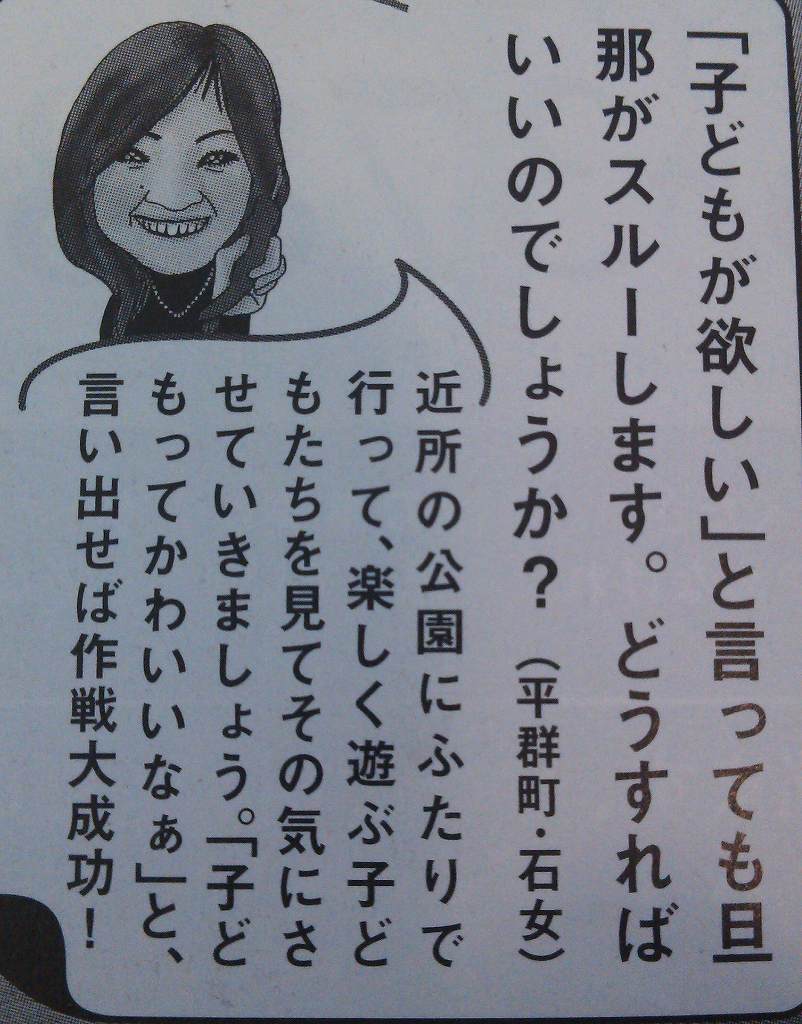 「子どもが欲しい」と言っても旦
那がスルーします。どうすれば
いいのでしょうか？（平群町・石女）
近所の公園にふたりで
行って、楽しく遊ぶ子ど
もたちを見てその気にさ
せていきましょう。「子ど
もってかわいいなぁ」と、
言い出せば作戦大成功！